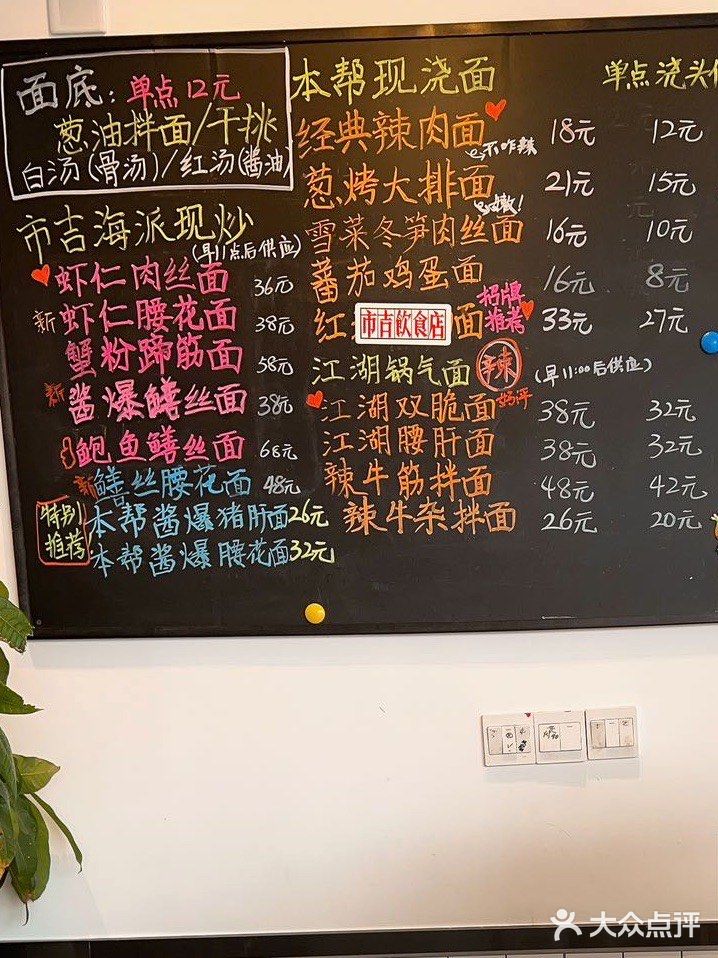 面底：单点12元
葱油拌面/干挑
白汤(骨汤)/红汤(酱油)
市吉海派现炒
(早11点后供应)
虾仁肉丝面 36元
新 虾仁腰花面 38元
蟹粉蹄筋面 58元
新 酱爆鳝丝面 38元
鲍鱼鳝丝面 68元
新 鳝丝腰花面 48元
特别推荐
本帮酱爆猪肝面 26元
本帮酱爆腰花面 32元
本帮现浇面 单点浇头
经典辣肉面 不咋辣 18元 12元
葱烤大排面 嫩！ 21元 15元
雪菜冬笋肉丝面 16元 10元
番茄鸡蛋面 16元 8元
红 市吉飲食店 面 招牌推荐 33元 27元
江湖锅气面 辣 (早11:00后供应)
江湖双脆面 好评 38元 32元
江湖腰肝面 38元 32元
辣牛筋拌面 48元 42元
辣牛杂拌面 26元 20元
大众点评